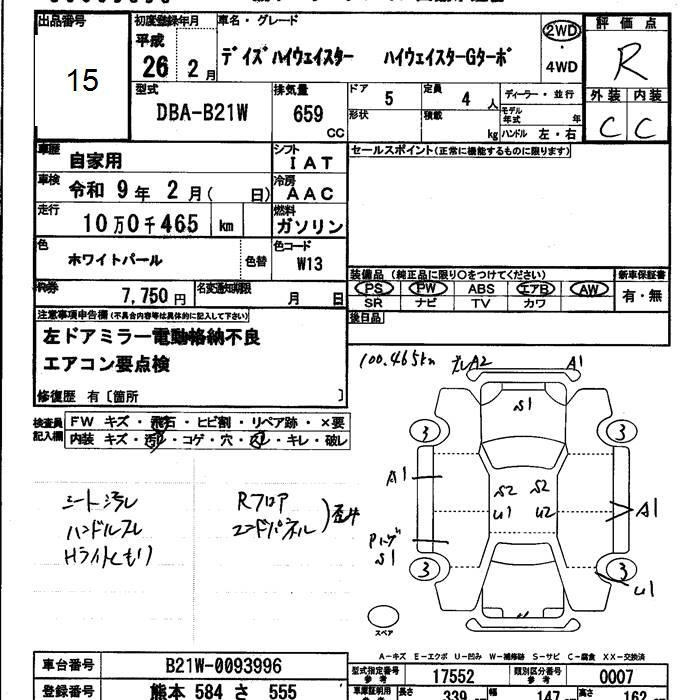 出品番号 初度登録年月 車名・グレード 評価点
15
平成 26 2月 デイズハイウェイスター ハイウェイスターGターボ 2WD 4WD R
型式 排気量 ドア 定員 ディーラー・並行 外装 内装
DBA-B21W 659 CC 5 4 人 C C
形状 積載 kg モデル年式 年
ハンドル 左・右
車歴 自家用 シフト IAT セールスポイント(正常に機能するものに限ります)
車検 令和 9年 2月( 日) 冷房 AAC
走行 10万0千465 km 燃料 ガソリン
色 ホワイトパール 色替 色コード W13
装備品(純正品に限り○をつけてください) 新車保証書
7,750円 名変通知期限 月 日 PS PW ABS エアB AW 有・無
SR ナビ TV カワ
注意事項申告欄(不具合内容等は具体的に記入して下さい) 後日品
左ドアミラー電動格納不良
エアコン要点検
修復歴 有〔箇所 〕
100,465km A2 A1
検査員記入欄 FW キズ・飛石・ヒビ割・リペア跡・×要
内装 キズ・汚れ・コゲ・穴・スレ・キレ・破レ
S1
3 3
A1 S2 S2
U1 U2 A1
Pトゲ
S1
3 3
U1
シート汚レ Rフロア
ハンドルスレ エンドパネル 歪ミ
Hライトくもり
スペア
A-キズ E-エクボ U-凹み W-補修跡 S-サビ C-腐食 XX-交換済
車台番号 B21W-0093996 型式指定番号 参考 17552 類別区分番号 参考 0007
登録番号 熊本 584 さ 555 車庫証明用 長さ 339 幅 147 高さ 162